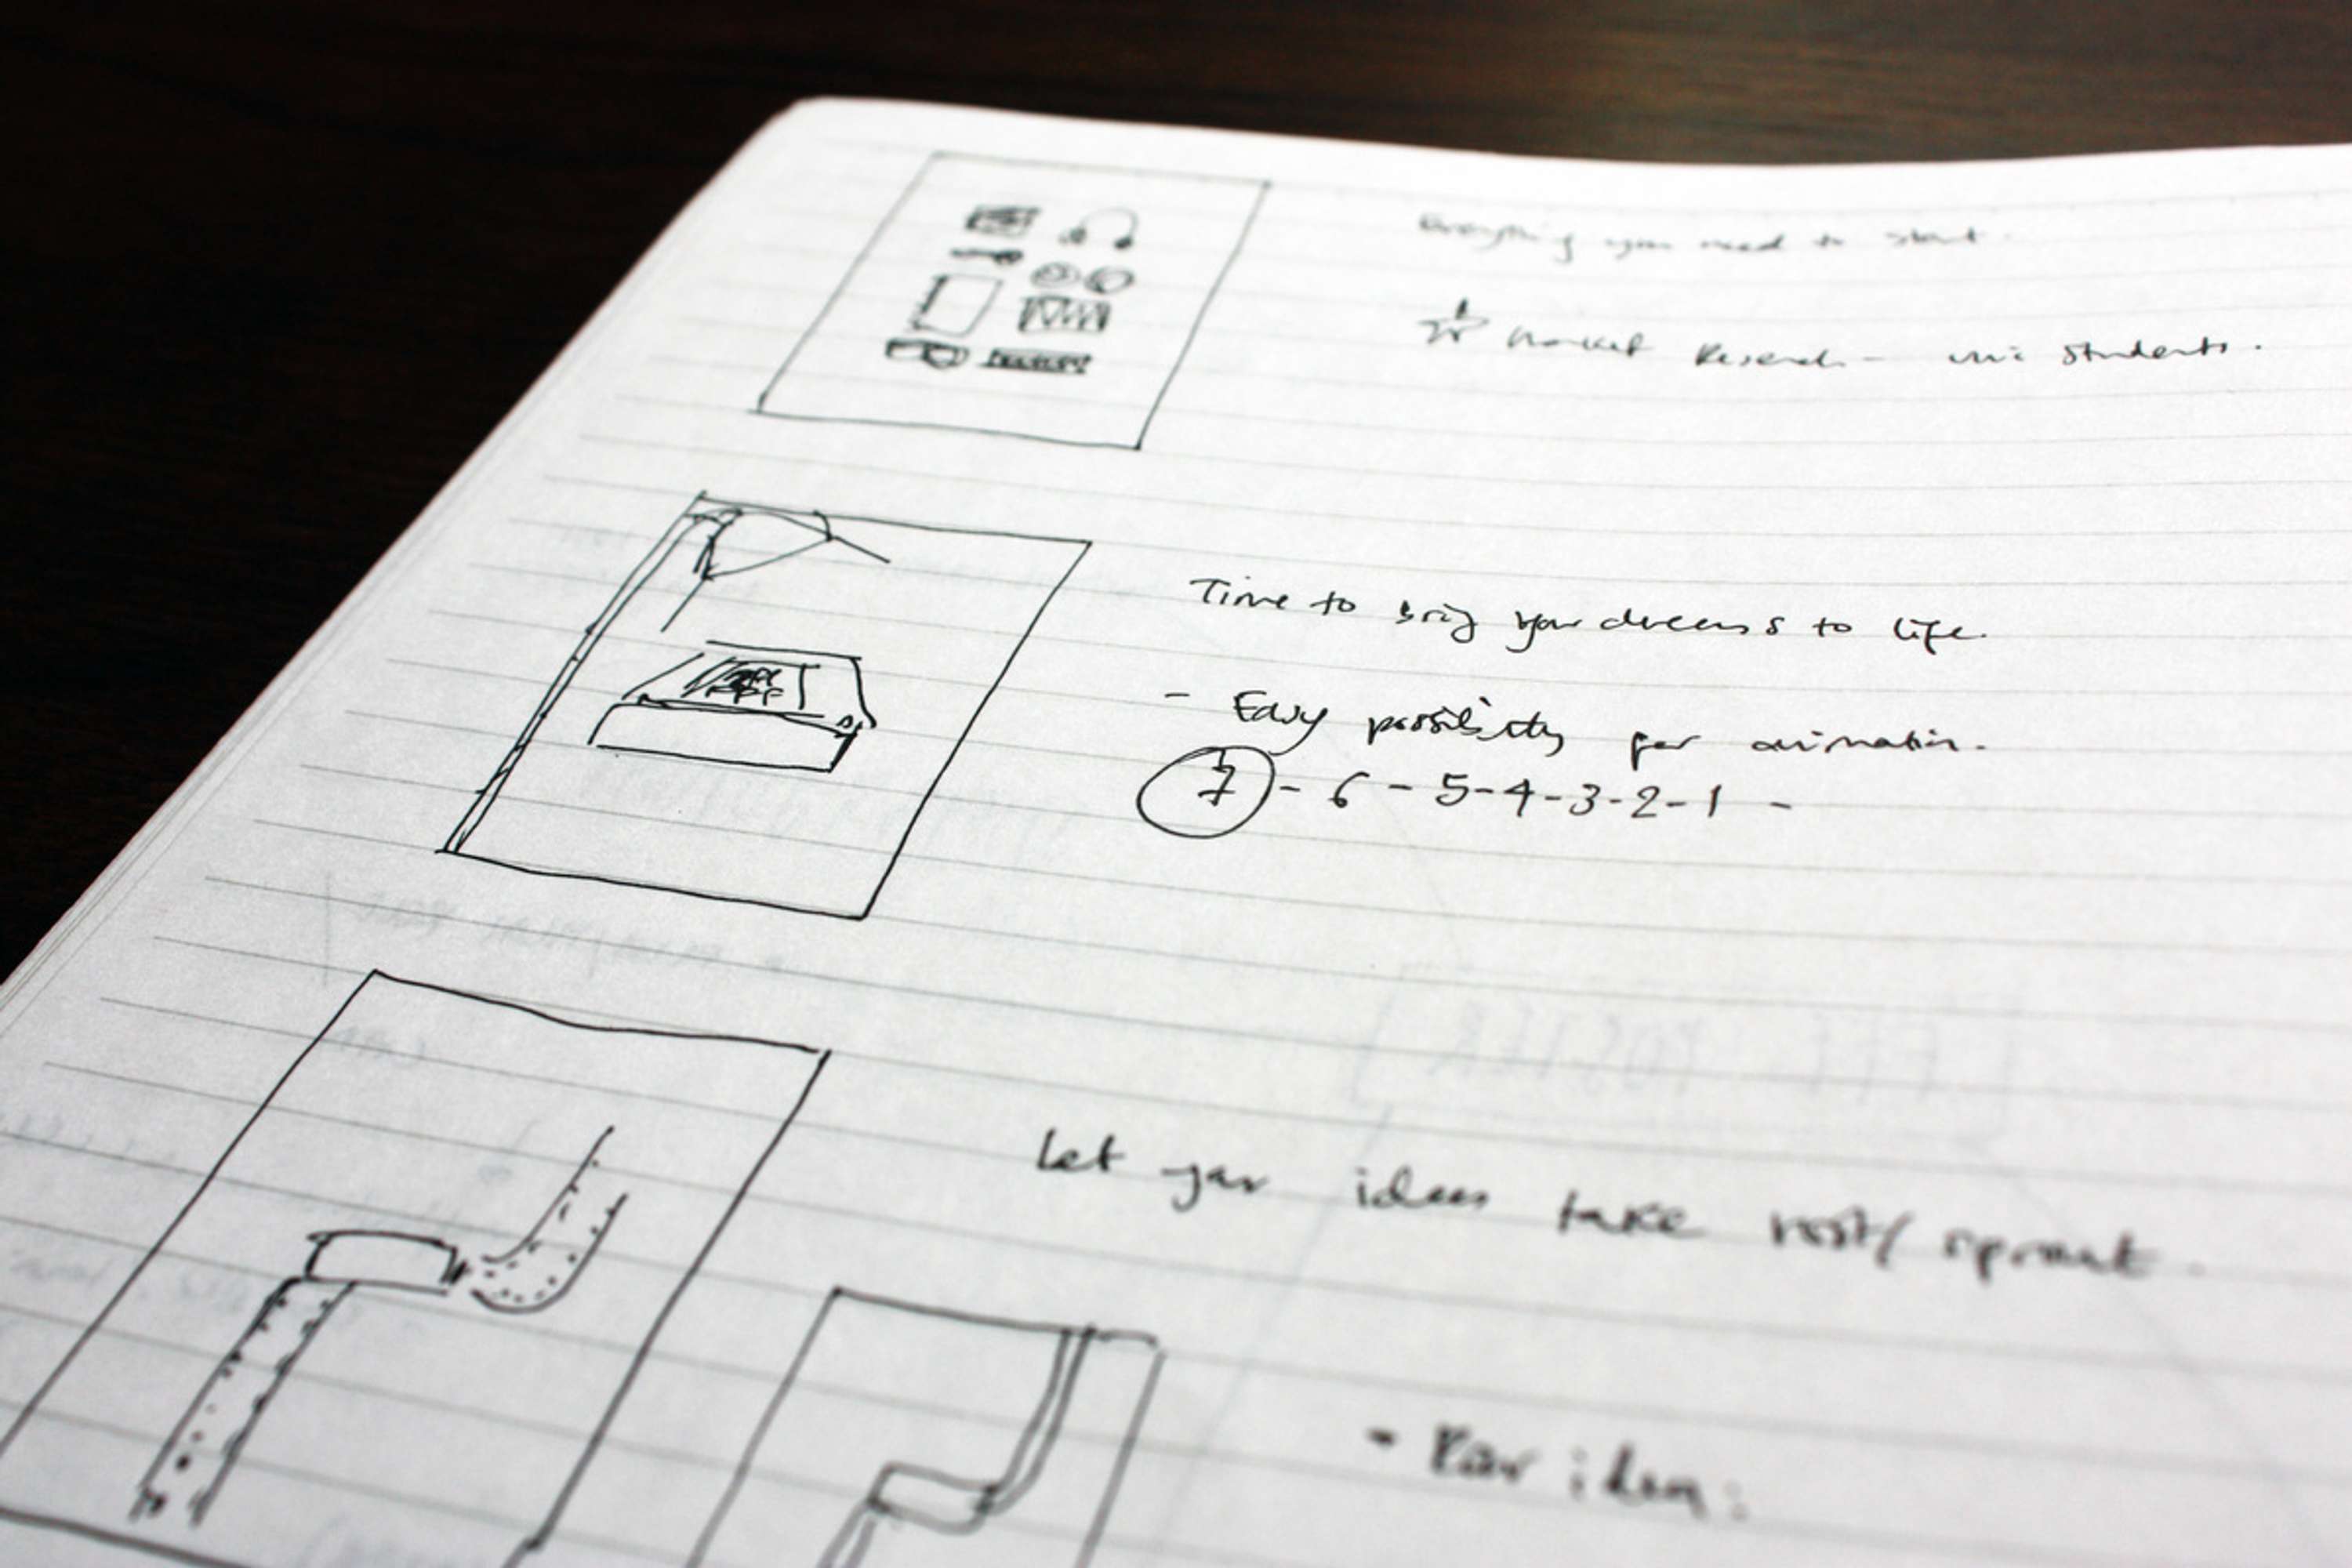 Everything you need to start.
Market Research - uni students.
Time to bring your dreams to life.
- Easy possibility for animation.
7 - 6 - 5-4-3-2-1 -
Let your ideas take root/ sprout.
- idea:
[ POSTER ]